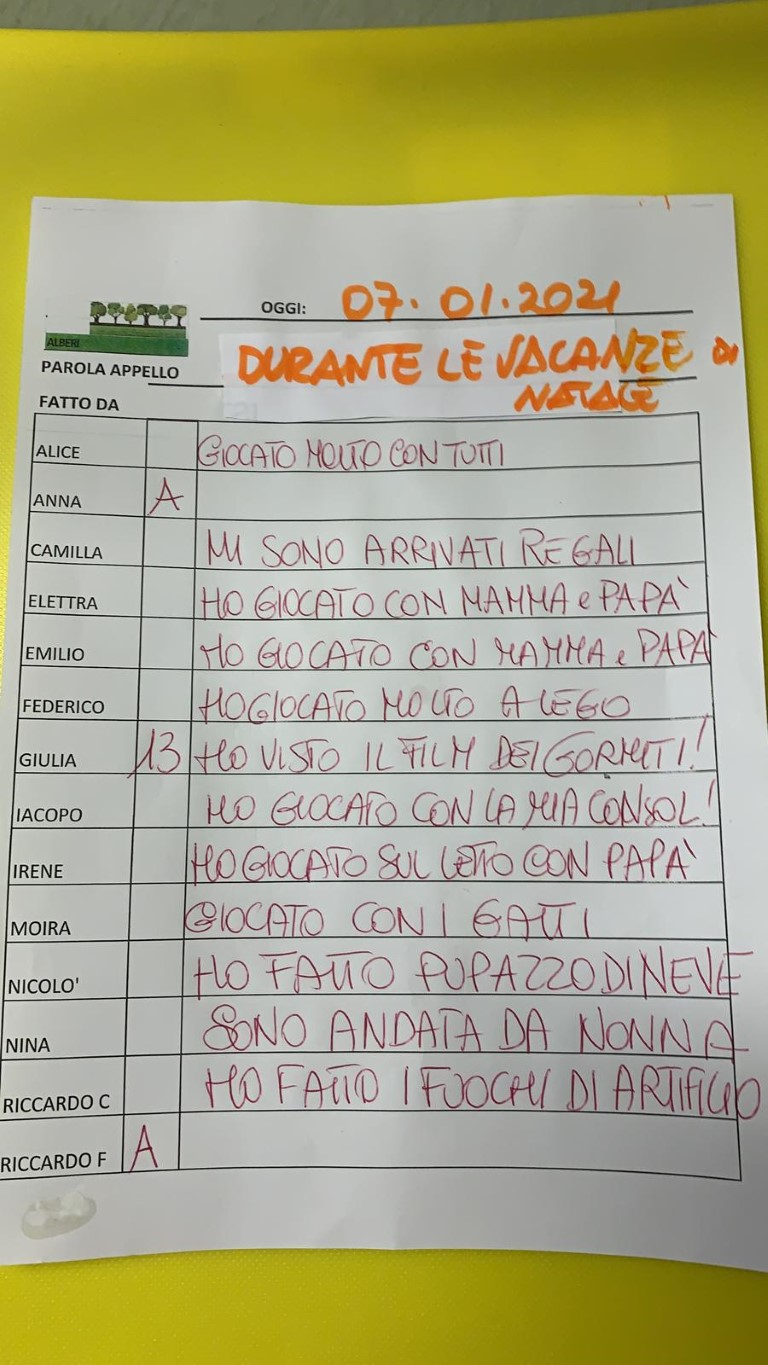 OGGI: 07.01.2021
ALBERI
PAROLA APPELLO DURANTE LE VACANZE DI
NATALE
FATTO DA
ALICE GIOCATO MOLTO CON TUTTI
ANNA A
CAMILLA MI SONO ARRIVATI REGALI
ELETTRA HO GIOCATO CON MAMMA e PAPÀ
EMILIO HO GIOCATO CON MAMMA e PAPÀ
FEDERICO HO GIOCATO MOLTO A LEGO
GIULIA 13 HO VISTO IL FILM DEI GORMITI!
IACOPO HO GIOCATO CON LA MIA CONSOL!
IRENE HO GIOCATO SUL LETTO CON PAPÀ
MOIRA GIOCATO CON I GATTI
NICOLO' HO FATTO PUPAZZO DI NEVE
NINA SONO ANDATA DA NONNA
RICCARDO C HO FATTO I FUOCHI DI ARTIFICIO
RICCARDO F A